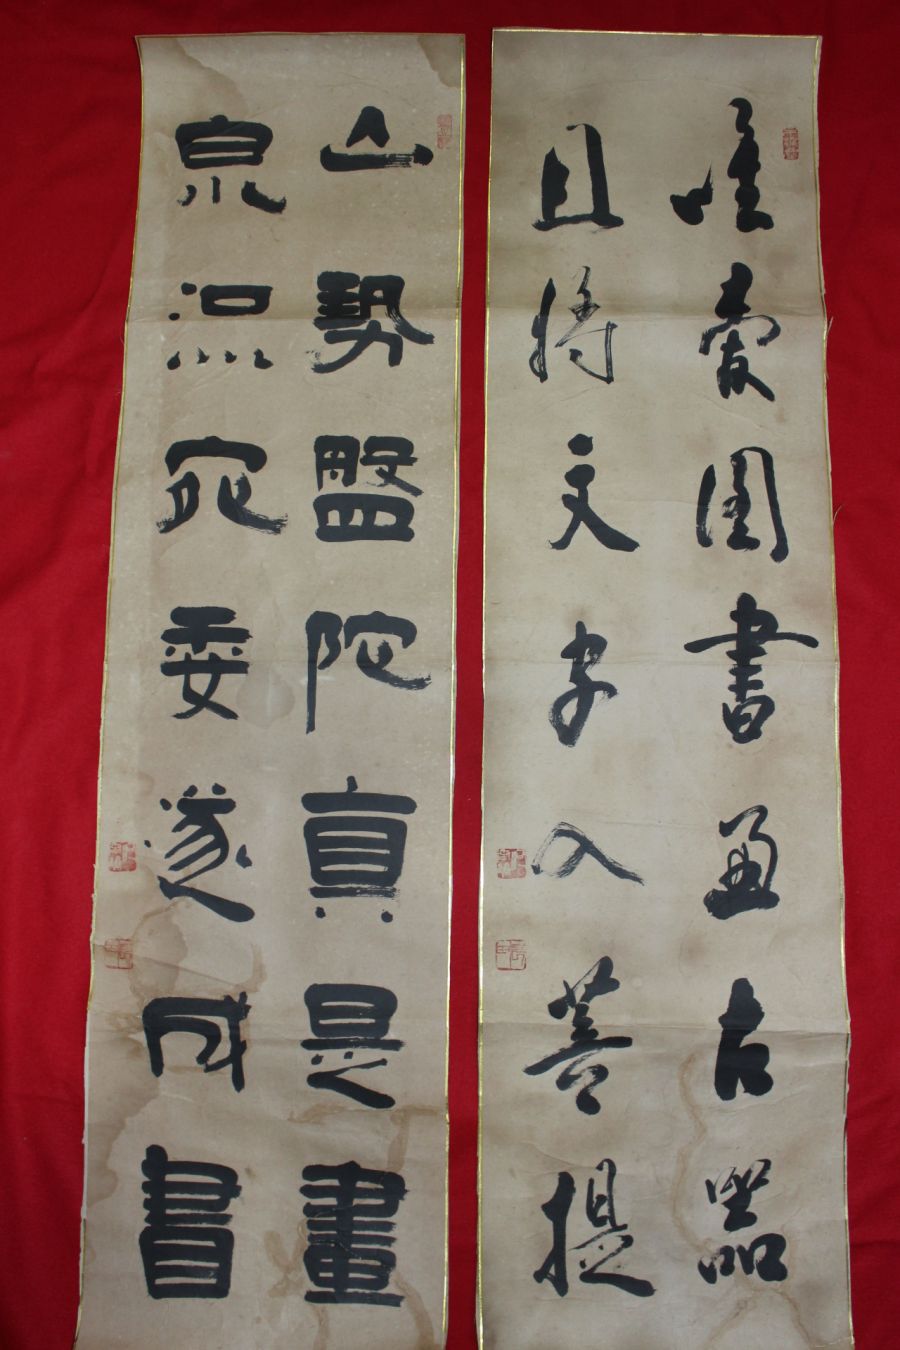 唯愛圖書兼古器
且將文字入菩提
山勢盤陀真是畫
泉流宛委遂成書